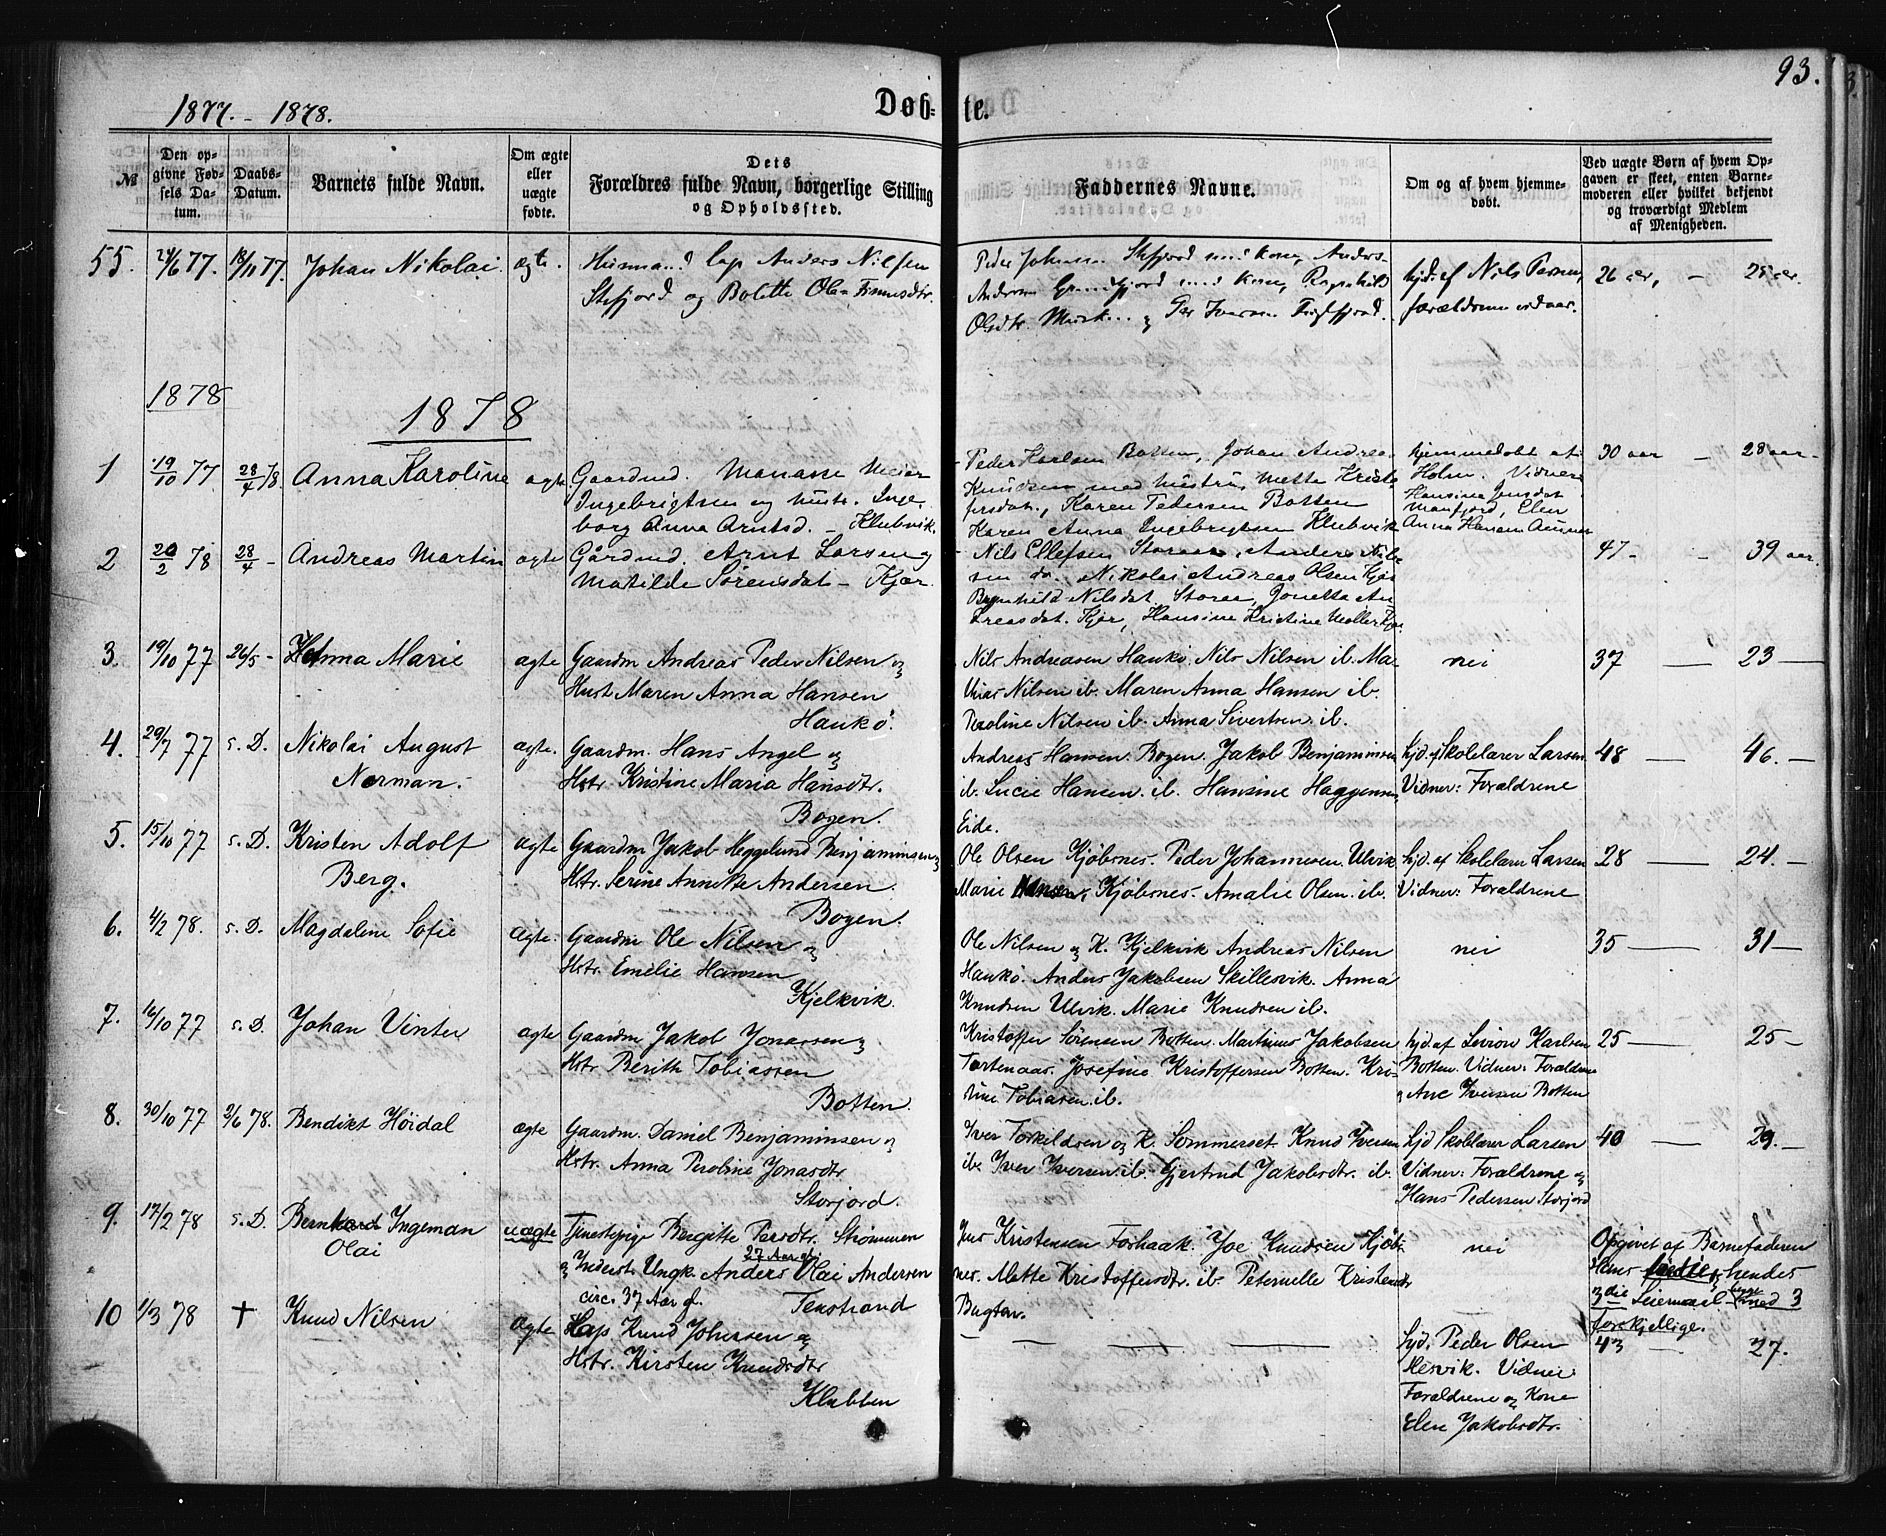 93.
1877. - 1878.
Døbte.
№
Den opgivne Fødsels Datum.
Daabs-Datum.
Barnets fulde Navn.
Om ægte eller uægte fødte.
Dets Forældres fulde Navn, borgerlige Stilling og Opholdssted.
Faddernes Navne.
Om og af hvem hjemmedøbt.
Ved uægte Børn af hvem Opgaven er skeet, enten Barnemoderen eller hvilket bekjendt og troværdigt Medlem af Menigheden.
55. 24/6 77. 18/11 77. Johan Nikolai ægte. Husmand Lap Anders Nilsen
Stefjord og Bolette Ole Finnusdtr.
Peder Johnsen Stefjord med kone, Anders
Andersen Grundfjord med kone, Ragnhild
Olsdtr. og Per Iversen
hjd. af Nils Persen,
forældrene vidner.
26 aar, - 25 aar.
1878
1878
1 19/10 77 28/4 78. Anna Karoline ægte Gaardmd. Manasse Meier
Ingebrigtsen og hustr. Inge-
borg Anna Arntsd. - Klubvik.
Peder Karlsen Botten, Johan Andrea
Knudsen med hustru, Mette Kristo
fersdat., Karen Pedersen Botten
Karen Anna Ingebrigtsen Klubvik
hjemmedøbt af
Holm. Vidner
Hansine Jensdat
Manfjord, Elen
Anna Hansen Aunes
30 aar - 28 aar -
2 20/2 78 28/4 - Andreas Martin ægte Gårdmd. Arnt Larsen og
Matilde Sørensdat - Kjær.
- Nils Ellefsen Storaa, Anders Nil-
sen do. Nikolai Andreas Olsen Kjær
Brynhild Nilsdat, Storaa, Jonetta An
dreasdat. Kjær, Hansine Kristine Møller Kjær
47 - - 39 aar.
3. 19/10 77 26/5 - Hanna Marie ægte Gaardm Andreas Peder Nilsen og
Hust Maren Anna Hansen
Haukø.
Nils Andreasen Haukø, Nils Nilsen ib. Ma-
thias Nilsen ib. Maren Anna Hansen ib.
Paoline Nilsen ib. Anna Sivertsen ib.
nei
37 - 23 -
4. 29/7 77 s. D. Nikolai August
Norman.
ægte. Gaardm. Hans Angel og
Hstr. Kristine Maria Hansdtr.
Bogen.
Andreas Hansen Bogen. Jakob Benjaminsen
ib. Lucie Hansen ib. Hansine Haggensen
Eide.
hjd. af Skolelærer Larsen
Vidner: Forældrene
48 - 46. -
5. 15/10 77 s. D. Kristen Adolf
Berg.
ægte Gaardm Jakob Heggelund Benjaminsen og
Hstr. Serine Annette Andersen.
Bogen.
Ole Olsen Kjøbsnes. Peder Johannesen Ulvik
Marie Kjøbsnes. Amalie Olsen ib.
hjd. af Skolelærer Larsen
Vidner: Forældrene
28 - 24. -
6. 4/2 78. s. D. Magdalene Sofie ægte. Gaardm Ole Nilsen og
Hstr. Emelie Hansen
Kjelkvik.
Ole Nilsen og K. Kjelkvik Andreas Nilsen
Haukø. Anders Jakobsen Skillesvik. Anna
Knudsen Ulvik. Marie Knudsen ib.
nei
35 - 31 -
7. 16/10 77 s. D. Johan Vinter ægte Gaardm Jakob Jonassen og
Hstr Berith Tobiassen
Botten.
Kristoffer Sørensen Botten. Martinus Jakobsen
Tortenaas. Josefine Kristoffersen Botten. Kri-
stine Tobiasen ib.
hjd. af Levion Karlsen
Botten. Vidner: Forældrene
og Ane Iversen Botten
25 - 25 -
8. 30/10 77 2/6 78. Bendikt Höidal ægte Gaardm. Daniel Benjaminsen og
Hstr. Anna Peroline Jonasdtr
Storjord.
Iver Torkildsen og K. Sommerset Knud Iversen
ib. Iver Iversen ib. Gjertrud Jakobsdtr. ib.
hjd Skolelærer Larsen
Vidner: Forældrene og
Hans Pedersen Storjord
40 - 29. -
9. 17/2 78 s. D. Bernhard Ingeman
Olai
uægte Tjenestepige Bergitte Persdtr. Strømmen
27 Aar gl.
og Inderst Ungk. Anders Olai Andersen
circ. 37 Aar gl. Tenstrand
Jens Kristensen Forhaak. Joe Knudsen Kjøbs-
nes. Mette Kristoffersdtr. ib. Peternelle Kristensdtr
Bugten.
nei
Opgivet af Barnefaderen
Hans hendes
3die Leiermaal med 3
forskjellige.
10 1/3 78 † Knud Nilsen ægte Lap Knud Johnsen og
Hstr. Kirsten Knudsdtr
Klubben
hjd. Peder Olsen
Hesvik. Vidner
Forældrene og Kone
Elen Jakobsdtr.
43 - 27.